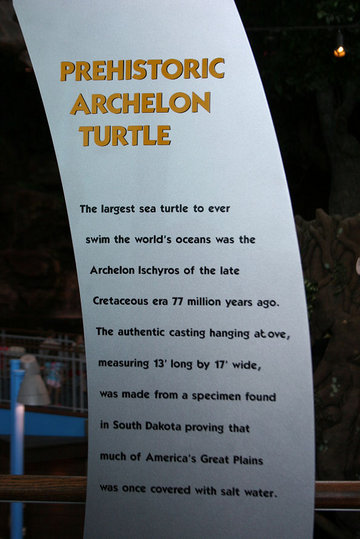 PREHISTORIC
ARCHELON
TURTLE
The largest sea turtle to ever
swim the world's oceans was the
Archelon Ischyros of the late
Cretaceous era 77 million years ago.
The authentic casting hanging above,
measuring 13' long by 17' wide,
was made from a specimen found
in South Dakota proving that
much of America's Great Plains
was once covered with salt water.